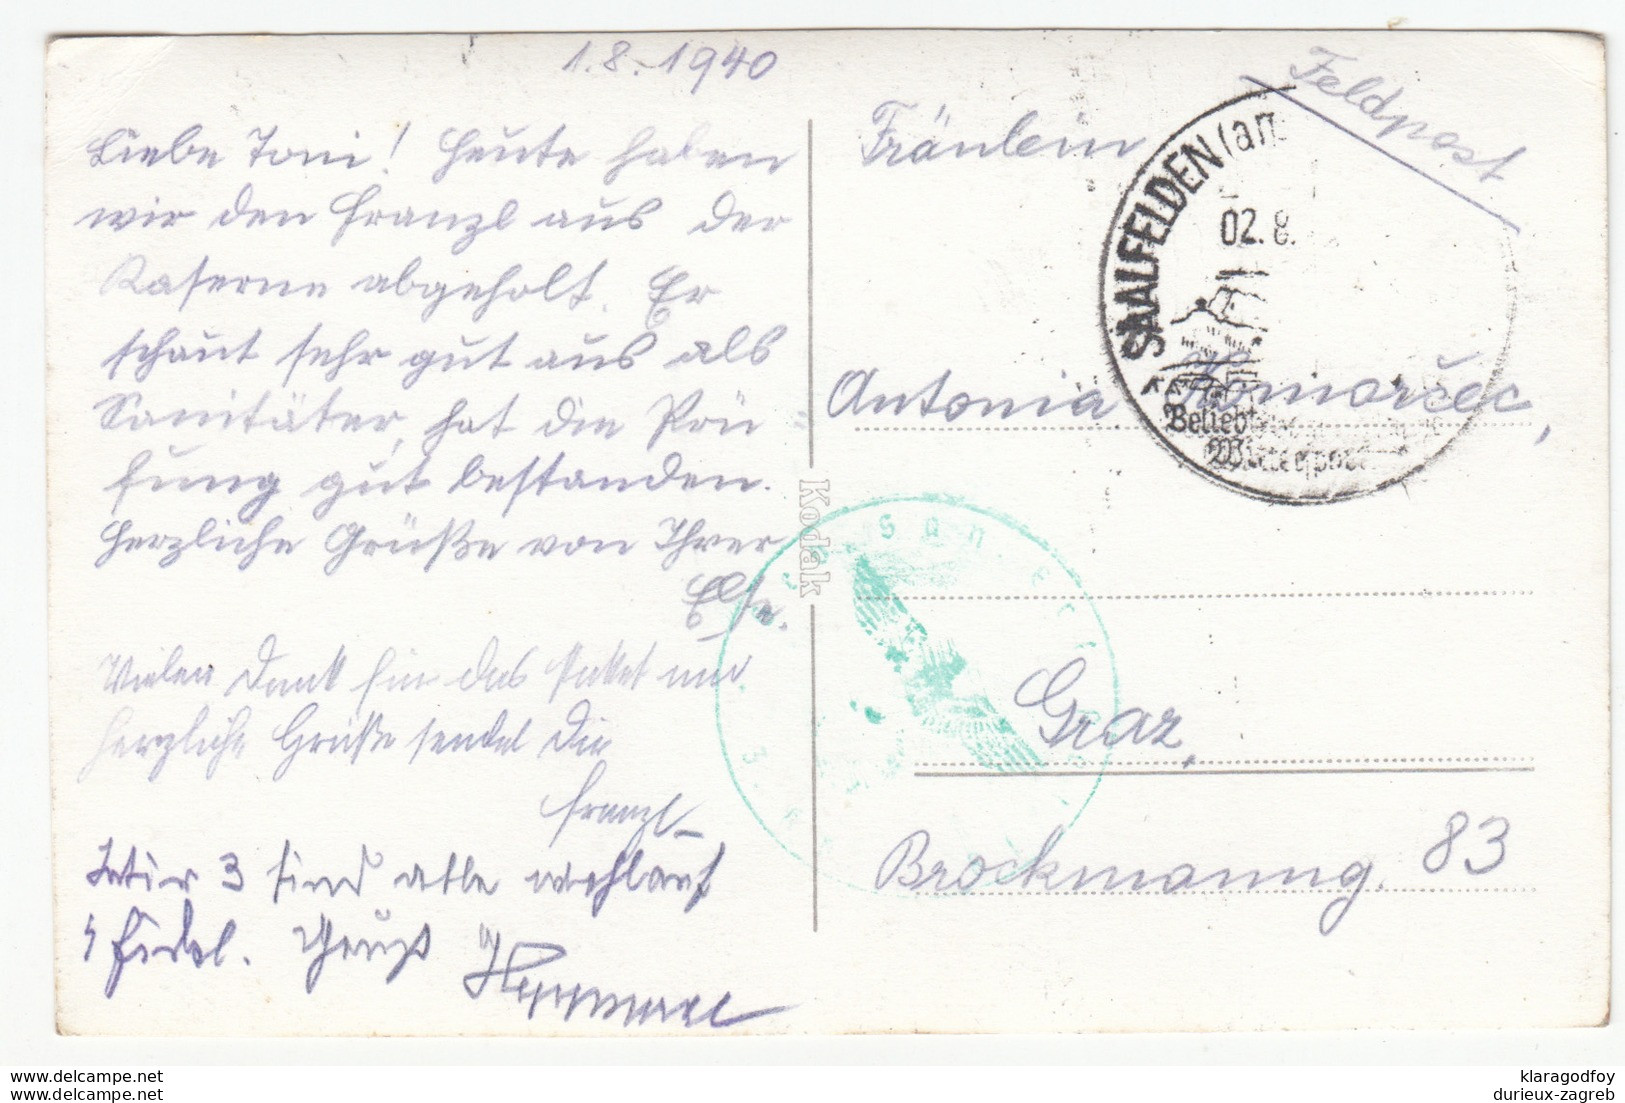 1.8.1940
Liebe Toni! Heute haben
wir den Franzl aus der
Kaserne abgeholt. Er
schaut sehr gut aus als
Sanitäter, hat die Prü
fung gut bestanden.
Herzliche Grüße von Ihrer
Else.
Vielen Dank für das Paket und
herzliche Grüße sendet Dir
Franzl
Wir 3 sind alle wohlauf
fidel. Gruß
Kodak
Feldpost
Fräulein
SAALFELDEN (am
02.8.
Beliebt
Antonia Komoršec,
Graz,
Brockmanng. 83
klaragodfoy
durieux-zagreb